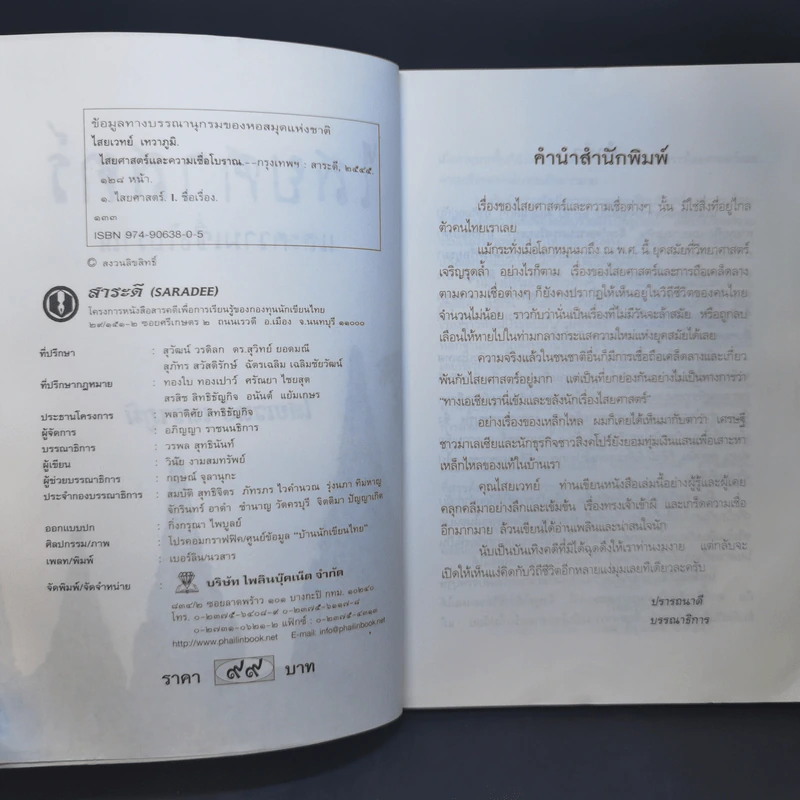 ข้อมูลทางบรรณานุกรมของหอสมุดแห่งชาติ
ไสยเวทย์ เทวาภูมิ.
ไสยศาสตร์และความเชื่อโบราณ.--กรุงเทพฯ : สาระดี, ๒๕๔๕.
๑๒๘ หน้า.
๑. ไสยศาสตร์. I. ชื่อเรื่อง.
๑๓๓
ISBN 974-90638-0-5
© สงวนลิขสิทธิ์
สาระดี (SARADEE)
โครงการหนังสือสารคดีเพื่อการเรียนรู้ของกองทุนนักเขียนไทย
๒๙/๑๕๑-๒ ซอยศรีเกษตร ๒ ถนนเรวดี อ.เมือง จ.นนทบุรี ๑๑๐๐๐
ที่ปรึกษา : สุวัฒน์ วรดิลก ดร.สุวิทย์ ยอดมณี
สุภัทร สวัสดิรักษ์ ฉัตรเฉลิม เฉลิมชัยวัฒน์
ที่ปรึกษากฎหมาย : ทองใบ ทองเปาว์ ศรัณยา ไชยสุต
สรสิช สิทธิธัญกิจ อนันต์ แย้มเกษร
ประธานโครงการ : พลาดิศัย สิทธิธัญกิจ
ผู้จัดการ : อภิญญา ราชนนธิการ
บรรณาธิการ : วรพล สุทธินันท์
ผู้เขียน : วินัย งามสมทรัพย์
ผู้ช่วยบรรณาธิการ : กฤษณ์ จุลานุกะ
ประจำกองบรรณาธิการ : สมบัติ สุทธิจิตร ภัทรภร ไวคำนวณ รุ่งนภา คิมหาญ
จักรินทร์ อาดำ ชำนาญ วัดครบุรี จิตลีมา ปัญญาเก็ต
ออกแบบปก : กิ่งกรุณา ไพบูลย์
ศิลปกรรม/ภาพ : โปรคอมกราฟฟิค/ศูนย์ข้อมูล "บ้านนักเขียนไทย"
เพลท/พิมพ์ : เบอร์ลิน/นวสาร
จัดพิมพ์/จัดจำหน่าย : บริษัท ไพลินบุ๊คเน็ต จำกัด
๘๓๔/๒ ซอยลาดพร้าว ๑๐๑ บางกะปิ กทม. ๑๐๒๔๐
โทร. ๐-๒๓๗๕-๖๔๐๘-๙ ๐-๒๓๗๕-๖๑๑๗-๘
๐-๒๗๓๑-๐๖๒๑-๒ แฟ็กซ์ : ๐-๒๓๗๕-๔๓๑๓
http://www.phailinbook.net E-mail. info@phailinbook.net
ราคา ๙๙ บาท
คำนำสำนักพิมพ์
เรื่องของไสยศาสตร์และความเชื่อต่างๆ นั้น มิใช่สิ่งที่อยู่ไกล
ตัวคนไทยเราเลย
แม้กระทั่งเมื่อโลกหมุนมาถึง ณ พ.ศ. นี้ ยุคสมัยที่วิทยาศาสตร์
เจริญรุดล้ำ อย่างไรก็ตาม เรื่องของไสยศาสตร์และการถือเคล็ดลาง
ตามความเชื่อต่างๆ ก็ยังคงปรากฏให้เห็นอยู่ในวิถีชีวิตของคนไทย
จำนวนไม่น้อย ราวกับว่านั่นเป็นเรื่องที่ไม่มีวันจะล้าสมัย หรือถูกลบ
เลือนให้หายไปในท่ามกลางกระแสความใหม่แห่งยุคสมัยได้เลย
ความจริงแล้วในชนชาติอื่นก็มีการเชื่อถือเคล็ดลางและเกี่ยว
พันกับไสยศาสตร์อยู่มาก แต่เป็นที่ยกย่องกันอย่างไม่เป็นทางการว่า
"ทางเอเชียเรานี่เข้มและขลังนักเรื่องไสยศาสตร์"
อย่างเรื่องของเหล็กไหล ผมก็เคยได้เห็นมากับตาว่า เศรษฐี
ชาวมาเลเซียและนักธุรกิจชาวสิงคโปร์ยังยอมทุ่มเงินแสนเพื่อเสาะหา
เหล็กไหลของแท้ในบ้านเรา
คุณไสยเวทย์ ท่านเขียนหนังสือเล่มนี้อย่างผู้รู้และผู้เคย
คลุกคลีมาอย่างลึกและเข้มข้น เรื่องทรงเจ้าเข้าผี และเกร็ดความเชื่อ
อีกมากมาย ล้วนเขียนได้อ่านเพลินและน่าสนใจนัก
นับเป็นบันเทิงคดีที่มิได้ฉุดดึงให้เราท่านงมงาย แต่กลับจะ
เปิดให้เห็นแง่คิดกับวิถีชีวิตอีกหลายแง่มุมเลยทีเดียวละครับ
ปรารถนาดี
บรรณาธิการ